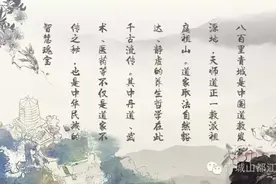 八百里青城是中国道教发
源地，天师道正一教派祖
庭祖山。道家取法自然豁
达、静虚的养生哲学在此
千古流传。其中丹道、武
术、医药等不仅是道家不
传之秘，也是中华民族的
智慧瑰宝。
城山都江